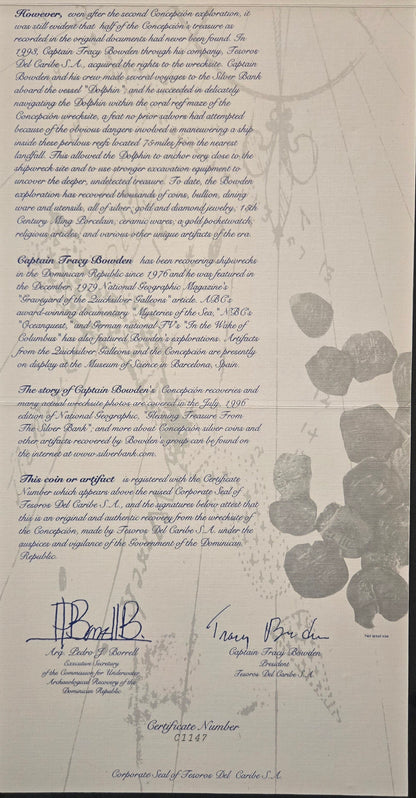 However, even after the second Concepción exploration, it
was still evident that half of the Concepción's treasure as
recorded in the original documents had never been found. In
1993, Captain Tracy Bowden through his company, Tesoros
Del Caribe S.A., acquired the rights to the wrecksite. Captain
Bowden and his crew made several voyages to the Silver Bank
aboard the vessel "Dolphin", and he succeeded in delicately
navigating the Dolphin within the coral reef maze of the
Concepción wrecksite, a feat no prior salvors had attempted
because of the obvious dangers involved in maneuvering a ship
inside these perilous reefs located 75 miles from the nearest
landfall. This allowed the Dolphin to anchor very close to the
shipwreck site and to use stronger excavation equipment to
uncover the deeper, undetected treasure. To date, the Bowden
exploration has recovered thousands of coins, bullion, dining
ware and utensils, all of silver, gold and diamond jewelry, 15th
Century Ming Porcelain, ceramic wares, a gold pocketwatch,
religious articles, and various other unique artifacts of the era.
Captain Tracy Bowden has been recovering shipwrecks
in the Dominican Republic since 1976 and he was featured in
the December, 1979 National Geographic Magazine's
"Graveyard of the Quicksilver Galleons" article. ABC's
award-winning documentary "Mysteries of the Sea," NBC's
"Oceanquest," and German national TV's "In the Wake of
Columbus" has also featured Bowden's explorations. Artifacts
from the Quicksilver Galleons and the Concepción are presently
on display at the Museum of Science in Barcelona, Spain.
The story of Captain Bowden's Concepción recoveries and
many actual wrecksite photos are covered in the July, 1996
edition of National Geographic, "Gleaning Treasure From
The Silver Bank", and more about Concepción silver coins and
other artifacts recovered by Bowden's group can be found on
the internet at www.silverbank.com.
This coin or artifact is registered with the Certificate
Number which appears above the raised Corporate Seal of
Tesoros Del Caribe S.A., and the signatures below attest that
this is an original and authentic recovery from the wrecksite of
the Concepción, made by Tesoros Del Caribe S.A. under the
auspices and vigilance of the Government of the Dominican
Republic.
Tracy Bowden
Arq. Pedro J. Borrell
Executive Secretary
of the Commission for Underwater
Archaeological Recovery of the
Dominican Republic
Captain Tracy Bowden
President
Tesoros Del Caribe S.A.
Certificate Number
C1147
Corporate Seal of Tesoros Del Caribe S.A.